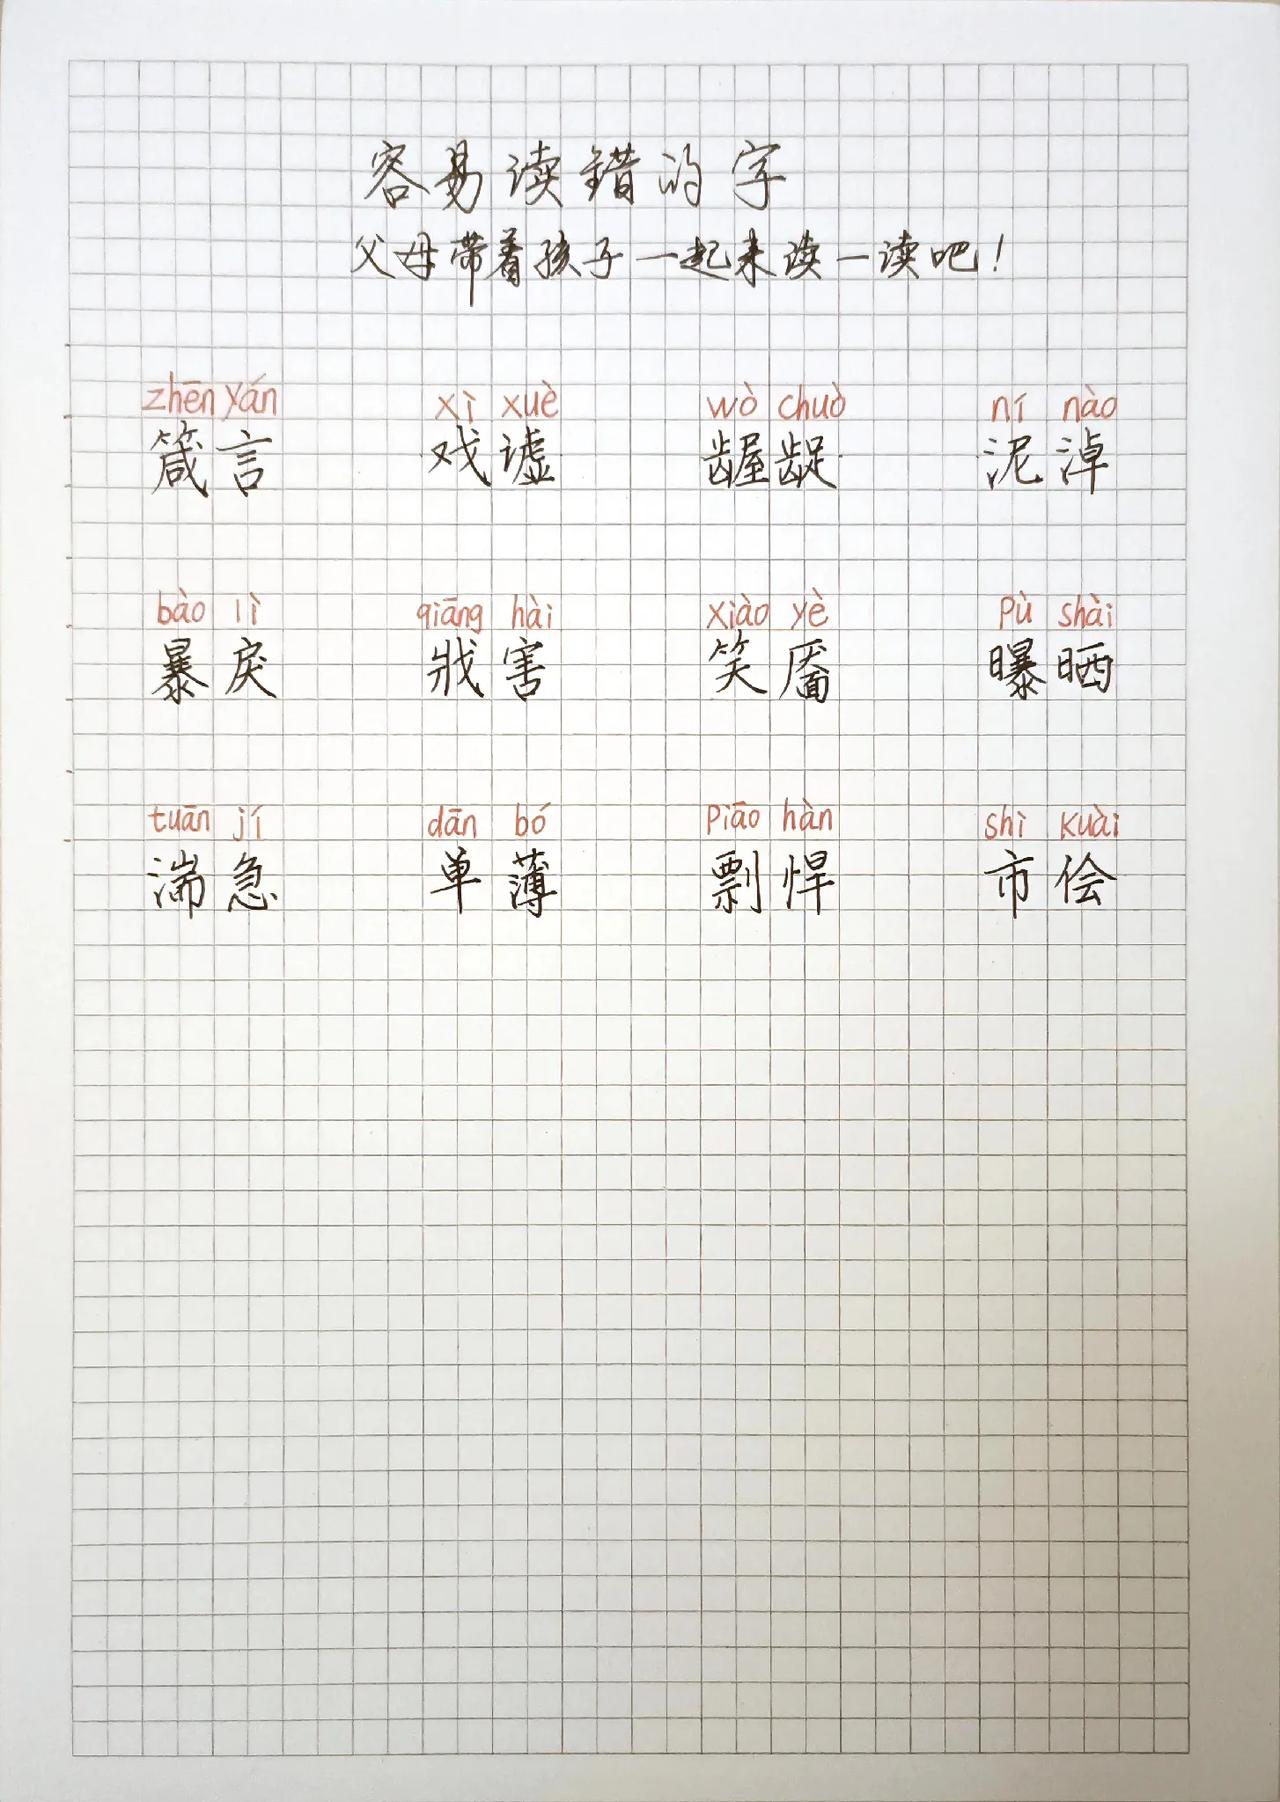 容易读错的字
父母带着孩子一起来读一读吧！
zhēn yán xì xuè wò chuò ní nào
箴言 戏谑 龌龊 泥淖
bào lì qiāng hài xiào yè pù shài
暴戾 戕害 笑靥 曝晒
tuān jí dān bó piāo hàn shì kuài
湍急 单薄 剽悍 市侩